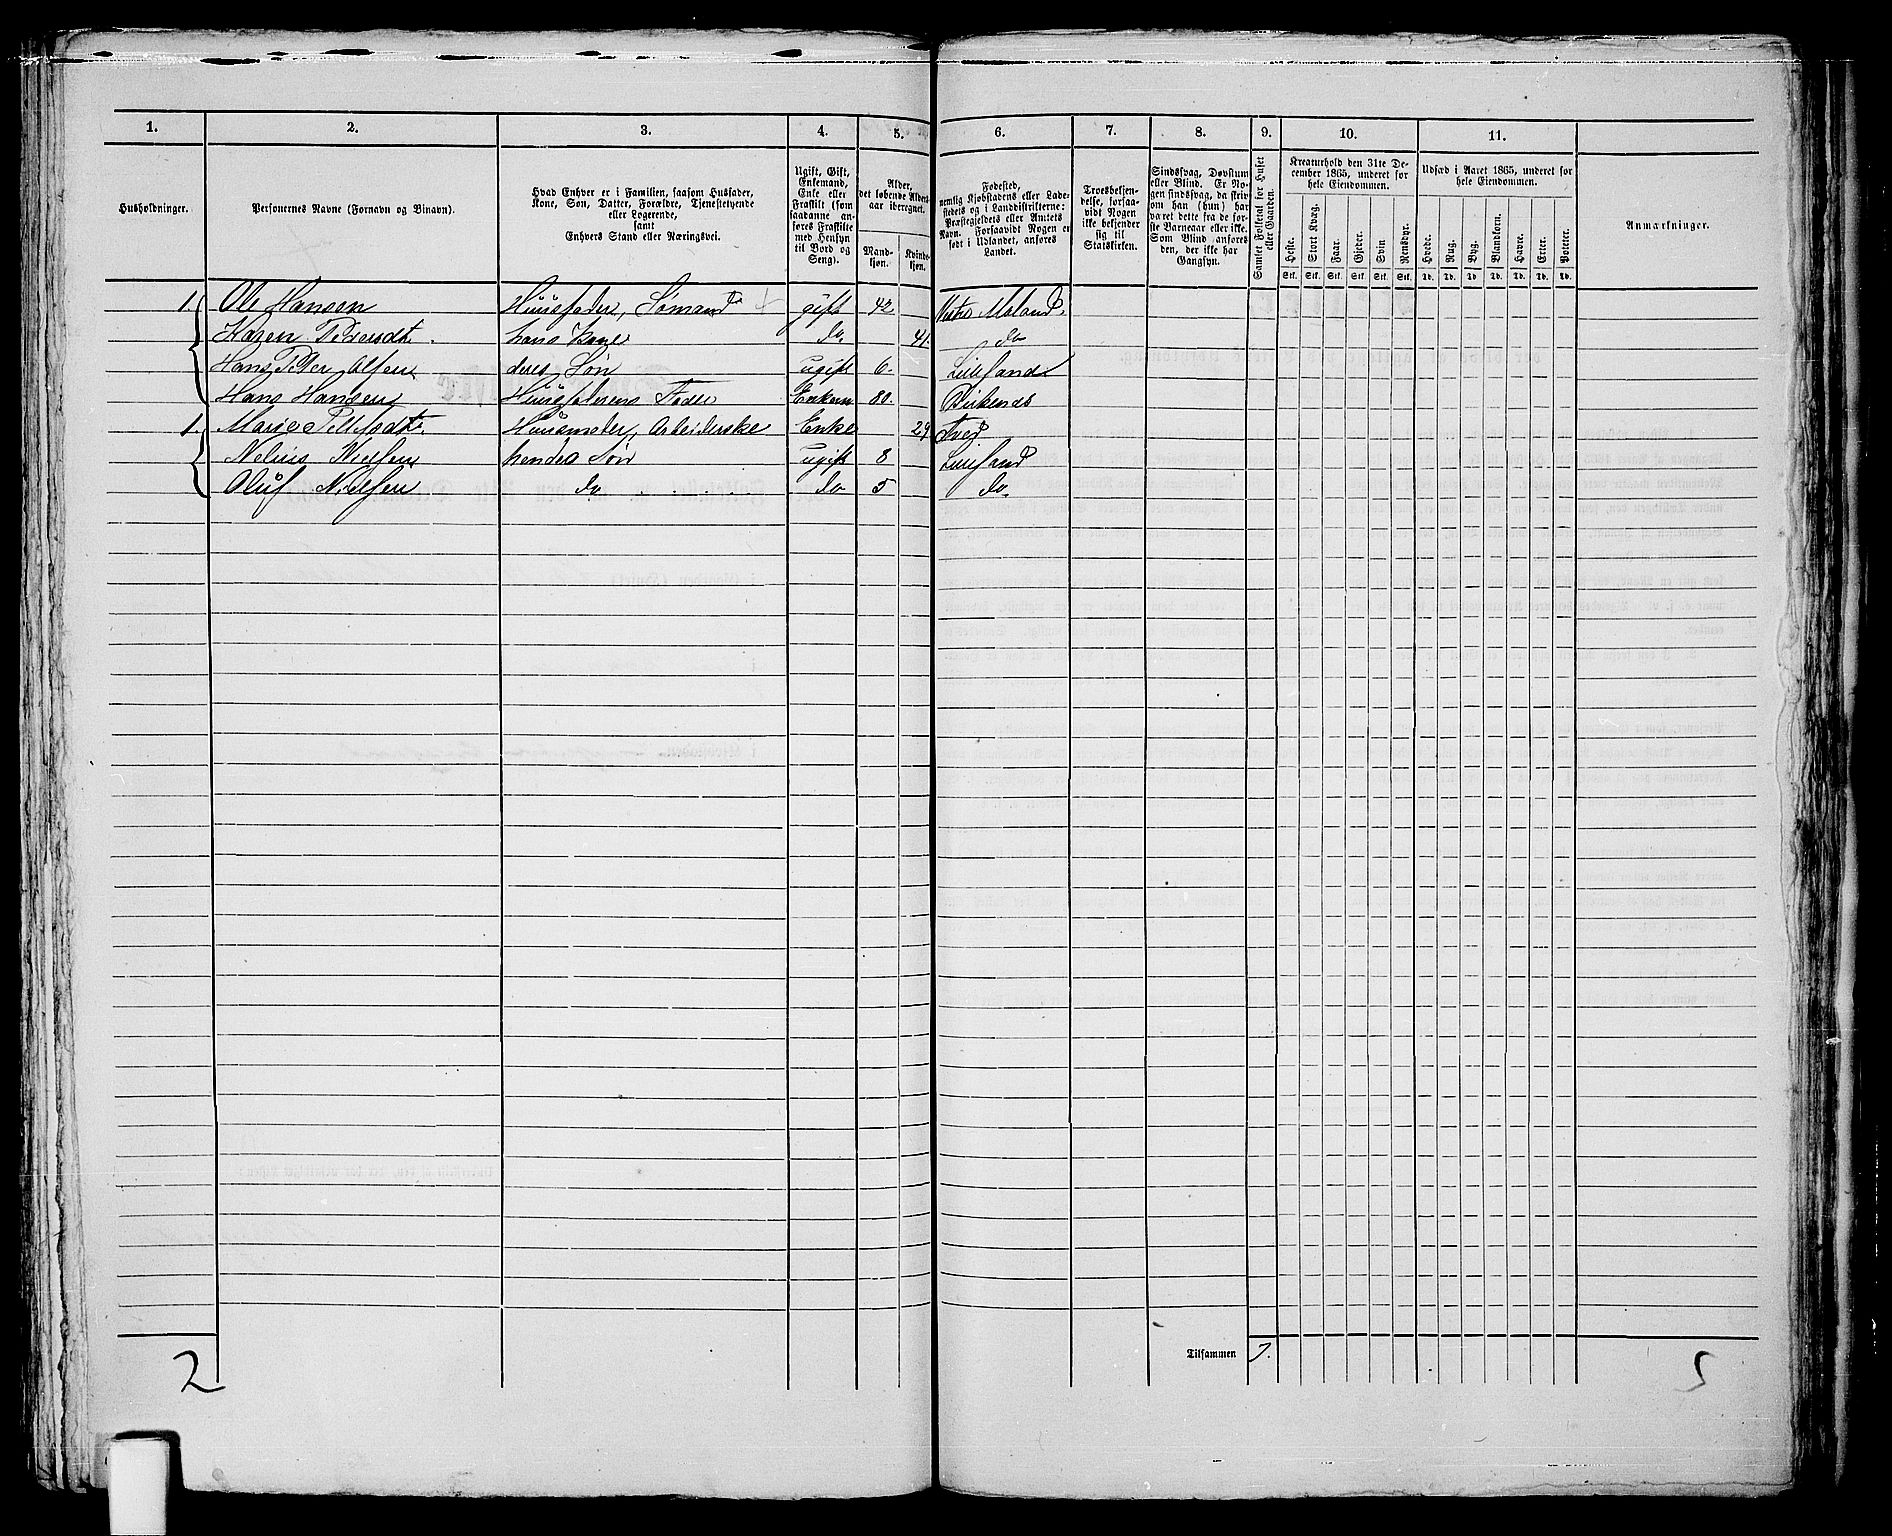 1. 2. 3. 4. 5. 6. 7. 8. 9. 10. 11.
Husholdninger.
Personernes Navne (Fornavn og Binavn).
Hvad Enhver er i Familien, saasom Husfader,
Kone, Søn, Datter, Forældre, Tjenestetyende
eller Logerende,
samt
Enhvers Stand eller Næringsvei.
Ugift, Gift,
Enkemand,
Enke eller
Fraskilt (som
saadanne an-
føres Fraskilte
med Hensyn
til Bord og
Seng).
Alder,
det løbende Alders-
aar iberegnet.
Mand-
kjøn.
Kvinde-
kjøn.
Fødested,
nemlig Kjøbstadens eller Lade-
stedets og i Landdistrikterne:
Præstegjeldets eller Amtets
Navn. Forsaavidt Nogen er
født i Udlandet, anføres
Landet.
Troesbekjen-
delse, forsaa-
vidt Nogen
ikke bekjender
sig til
Statskirken.
Sindssvag, Døvstum
eller Blind. Er No-
gen sindssvag, da skriv
om han (hun) har
været dette fra de før-
ste Barneaar eller ikke.
Som Blind anføres
den, der ikke har
Gangsyn.
Samlet Folketal for Huset
eller Gaarden.
Kreaturhold den 31te De-
cember 1865, underet for
hele Eiendommen.
Heste. Stort Kvæg. Faar. Gjeder. Svin Rensdyr.
Stk. Stk. Stk. Stk. Stk. Stk.
Udsæd i Aaret 1865, underet for
hele Eiendommen.
Hvede. Rug. Byg. Blandkorn. Havre. Erter. Poteter.
Td. Td. Td. Td. Td. Td. Td.
Anmærkninger.
1. Ole Hansen Huusfader, Sømand gift 42. Vestre Moland.
Karen Pedersdt. hans Kone do. 41. do
Hans Peter Olsen deres Søn ugift 6. Lillesand
Hans Hansen Huusfaderens Fader Enkem 80. Birkenæs
1. Marie Huusmoder, Arbeiderske Enke 29 Tved
Nelius Nielsen hendes Søn ugift 8 Lillesand
Oluf Nielsen do do 5 do
Tilsammen 7.
2
5